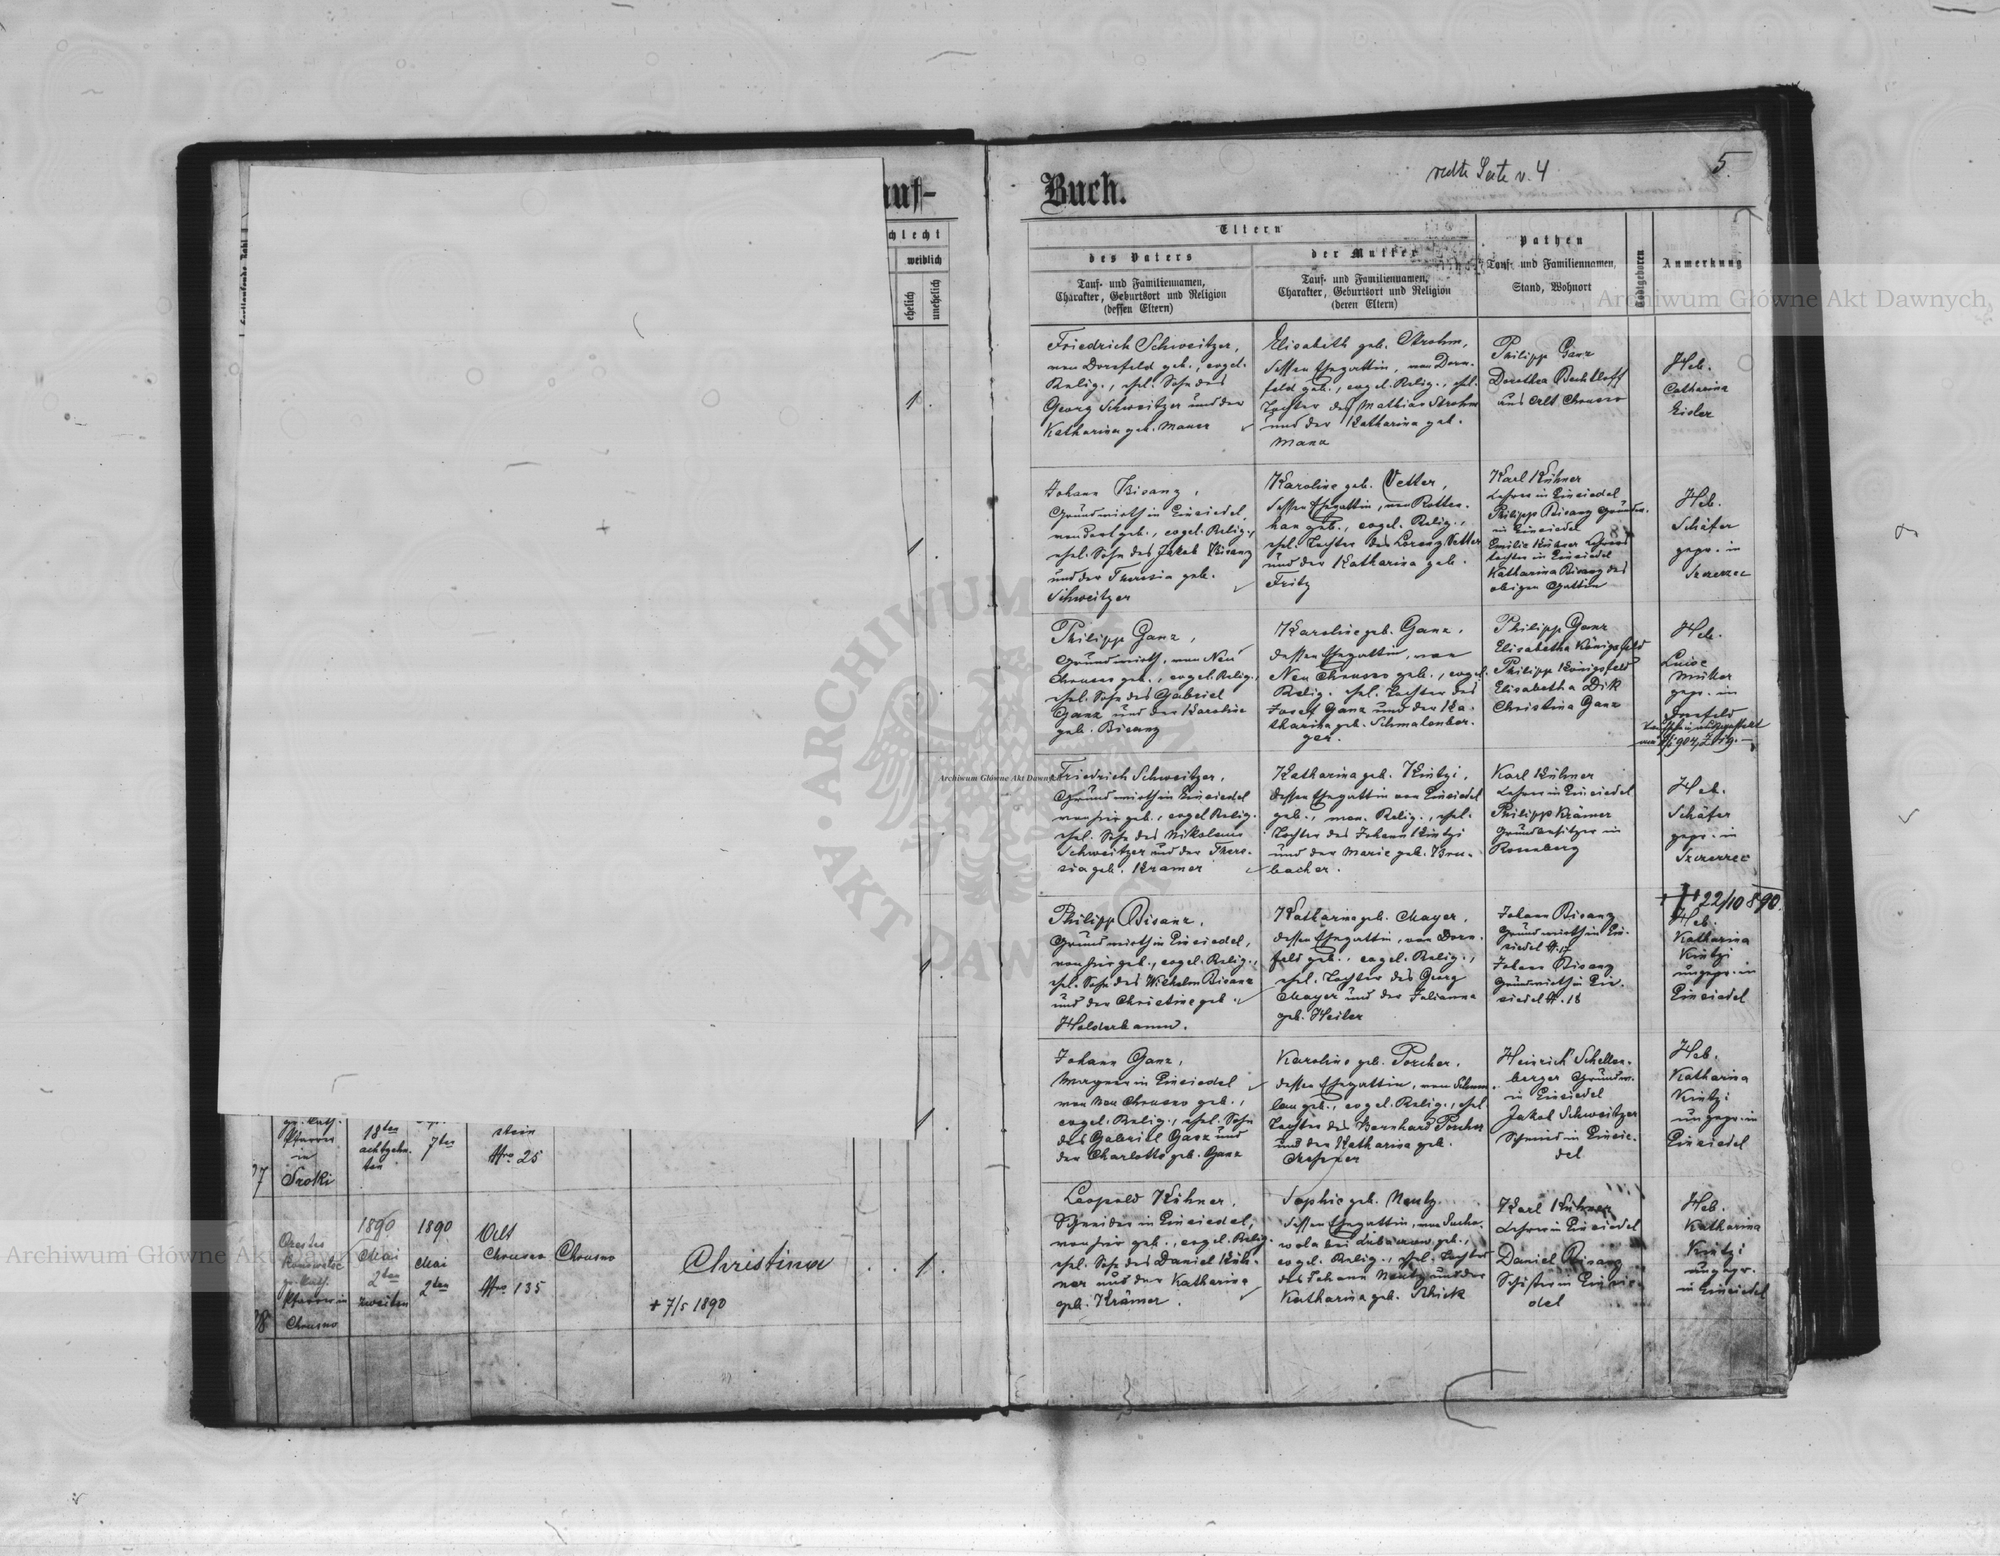 auf-
Buch.
rechte Seite v. 4
5.
weiblich
ehelich
unehelich
Eltern
des Vaters
Tauf- und Familiennamen,
Charakter, Geburtsort und Religion
(dessen Eltern)
der Mutter
Tauf- und Familiennamen,
Charakter, Geburtsort und Religion
(deren Eltern)
Pathen
Tauf- und Familiennamen,
Stand, Wohnort
Todtgeboren
Anmerkung
Archiwum Główne Akt Dawnych
1.
Friedrich Schweitzer,
von Dornfeld geb., evgel.
Relig., ehel. Sohn des
Georg Schweitzer und der
Katharina geb. Mauer
Elisabeth geb. Strohm,
dessen Ehegattin, von Dorn-
feld geb., evgel. Relig., ehel.
Tochter des Mathias Strohm
und der Katharina geb.
Mann
Philipp Ganz
Dorothea Bechtloff
aus Alt Chrusno
Heb.
Catharina
Eisler
1.
Johann Bisanz,
Grundwirth in Einsiedel,
von dort geb., evgel. Relig.,
ehel. Sohn des Jakob Bisanz
und der Theresia geb.
Schweitzer
Karoline geb. Vetter,
dessen Ehegattin, von Rotten-
han geb., evgel. Relig.,
ehel. Tochter des Lorenz Vetter
und der Katharina geb.
Fritz
Karl Kühner
Lehrer in Einsiedel
Philipp Bisanz Grundw.
in Einsiedel
Emilie Kühner Lehrers
tochter in Einsiedel
Katharina Bisanz des
obigen Gattin
Heb.
Schäfer
gepr. in
Szczerzec
Philipp Ganz,
Grundwirth, von Neu
Chrusno geb., evgel. Relig.,
ehel. Sohn des Gabriel
Ganz und der Karoline
geb. Bisanz
Karoline geb. Ganz,
dessen Ehegattin, von
Neu Chrusno geb., evgel.
Relig. ehel. Tochter des
Josef Ganz und der Ka-
tharina geb. Schmalenber-
ger.
Philipp Ganz
Elisabetha Königsfeld
Philipp Königsfeld
Elisabetha Dik
Christina Ganz
Heb.
Luise
Müller
gepr. in
Dornfeld
Friedrich Schweitzer,
Grundwirth in Einsiedel
von hier geb., evgel. Relig.
ehel. Sohn des Nikolaus
Schweitzer und der There-
sia geb. Kramer
Katharina geb. Kintzi,
dessen Ehegattin von Einsiedel
geb., men. Relig., ehel.
Tochter des Johann Kintzi
und der Marie geb. Bru-
bacher.
Karl Kühner
Lehrer in Einsiedel
Philipp Krämer
Grundbesitzer in
Rosenberg
Heb.
Schäfer
gepr. in
Szczerzec
1.
Philipp Bisanz,
Grundwirth in Einsiedel,
von hier geb., evgel. Relig.,
ehel. Sohn des Wilhelm Bisanz
und der Christine geb.
Holderbaum.
Katharina geb. Mayer,
dessen Ehegattin, von Dorn-
feld geb., evgel. Relig.,
ehel. Tochter des Georg
Mayer und der Julianna
geb. Heiler
Johann Bisanz
Grundwirth in Ein-
siedel N. 17
Johann Bisanz
Grundwirth in Ein-
siedel N. 18
† 22/10 890.
Heb.
Katharina
Kintzi
ungepr. in
Einsiedel
1.
Johann Ganz,
Wagner in Einsiedel
von Neu Chrusno geb.,
evgel. Relig., ehel. Sohn
des Gabriel Ganz und
der Charlotte geb. Ganz
Karoline geb. Porcher,
dessen Ehegattin,
geb., evgel. Relig., ehel.
Tochter des Bernhard Porcher
und der Katharina geb.
Heinrich Schellen-
berger Grundw.
in Einsiedel
Jakob Schweitzer
Schmied in Einsie-
del
Heb.
Katharina
Kintzi
ungepr. in
Einsiedel
gr. kath.
Pfarrer
in
Sroki
18ten
achtzehn-
ten
7ten
stein
Nro 25
98
Orestes
gr. kath.
Pfarrer in
Chrusno
1890
Mai
2ten
zweiten
1890
Mai
2ten
Alt
Chrusno
Nro 135
Chrusno
Christina
† 7/5 1890
1.
Leopold Kühner,
Schneider in Einsiedel,
von hier geb., evgel. Relig.
ehel. Sohn des Daniel Küh-
ner und der Katharina
geb. Krämer.
Sophie geb. Mentz,
dessen Ehegattin,
evgel. Relig., ehel. Tochter
des Johann Mentz und der
Katharina geb. Schick
Karl Kühner
Lehrer in Einsiedel
Daniel Bisanz
Schuster in Einsie-
del
Heb.
Katharina
Kintzi
ungepr.
in Einsiedel